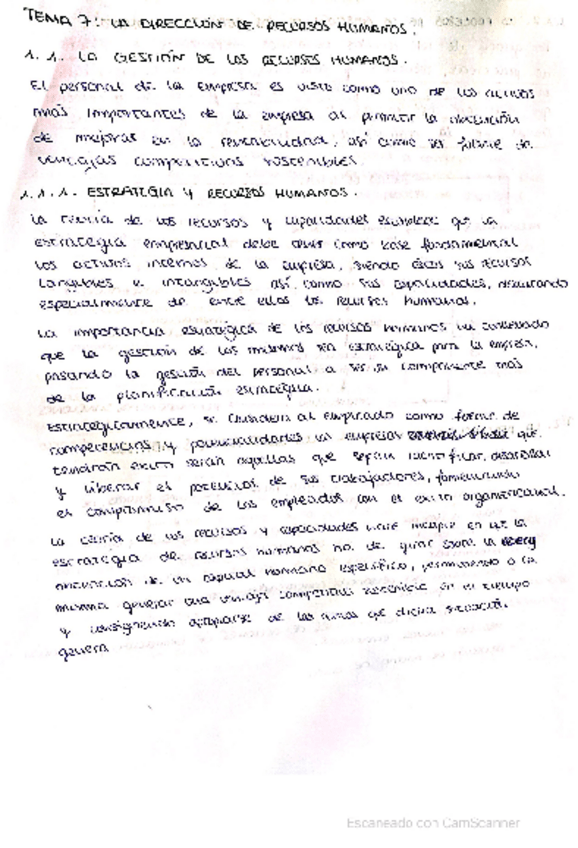 TEMA 7: LA DIRECCIÓN DE RECURSOS HUMANOS.
1.1. LA GESTIÓN DE LOS RECURSOS HUMANOS.
El personal de la empresa es visto como uno de los activos
más importantes de la empresa al permitir la obtención
de mejoras en la rentabilidad, así como ser fuente de
ventajas competitivas sostenibles.
1.1.1. ESTRATEGIA Y RECURSOS HUMANOS.
La teoría de los recursos y capacidades establece que la
estrategia empresarial debe tener como base fundamental
los activos internos de la empresa, siendo éstos sus recursos
tangibles e intangibles así como sus capacidades, destacando
especialmente de entre ellos los recursos humanos.
La importancia estratégica de los recursos humanos ha conllevado
que la gestión de los mismos sea estratégica para la empresa,
pasando la gestión del personal a ser un componente más
de la planificación estratégica.
Estratégicamente, se considera al empleado como fuente de
competencias y potencialidades las empresas que
tendrán éxito serán aquellas que sepan identificar, desarrollar
y liberar el potencial de sus trabajadores, fomentando
el compromiso de los empleados con el éxito organizacional.
La teoría de los recursos y capacidades hace hincapié en que la
estrategia de recursos humanos ha de girar sobre la
de un capital humano específico, permitiendo a la
misma generar una ventaja competitiva sostenible en el tiempo
y consiguiendo apropiarse de las rentas que dicha situación
genera
Escaneado con CamScanner